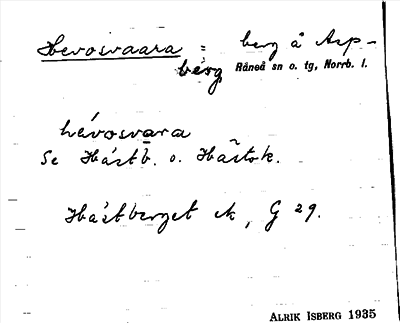 Hevosvaara = berg å Asp-
berg Råneå sn o. tg, Norrb. l.
hévosvāra
Se Hästb. o. Hästok.
Hästberget ek, G 29.
ALRIK ISBERG 1935